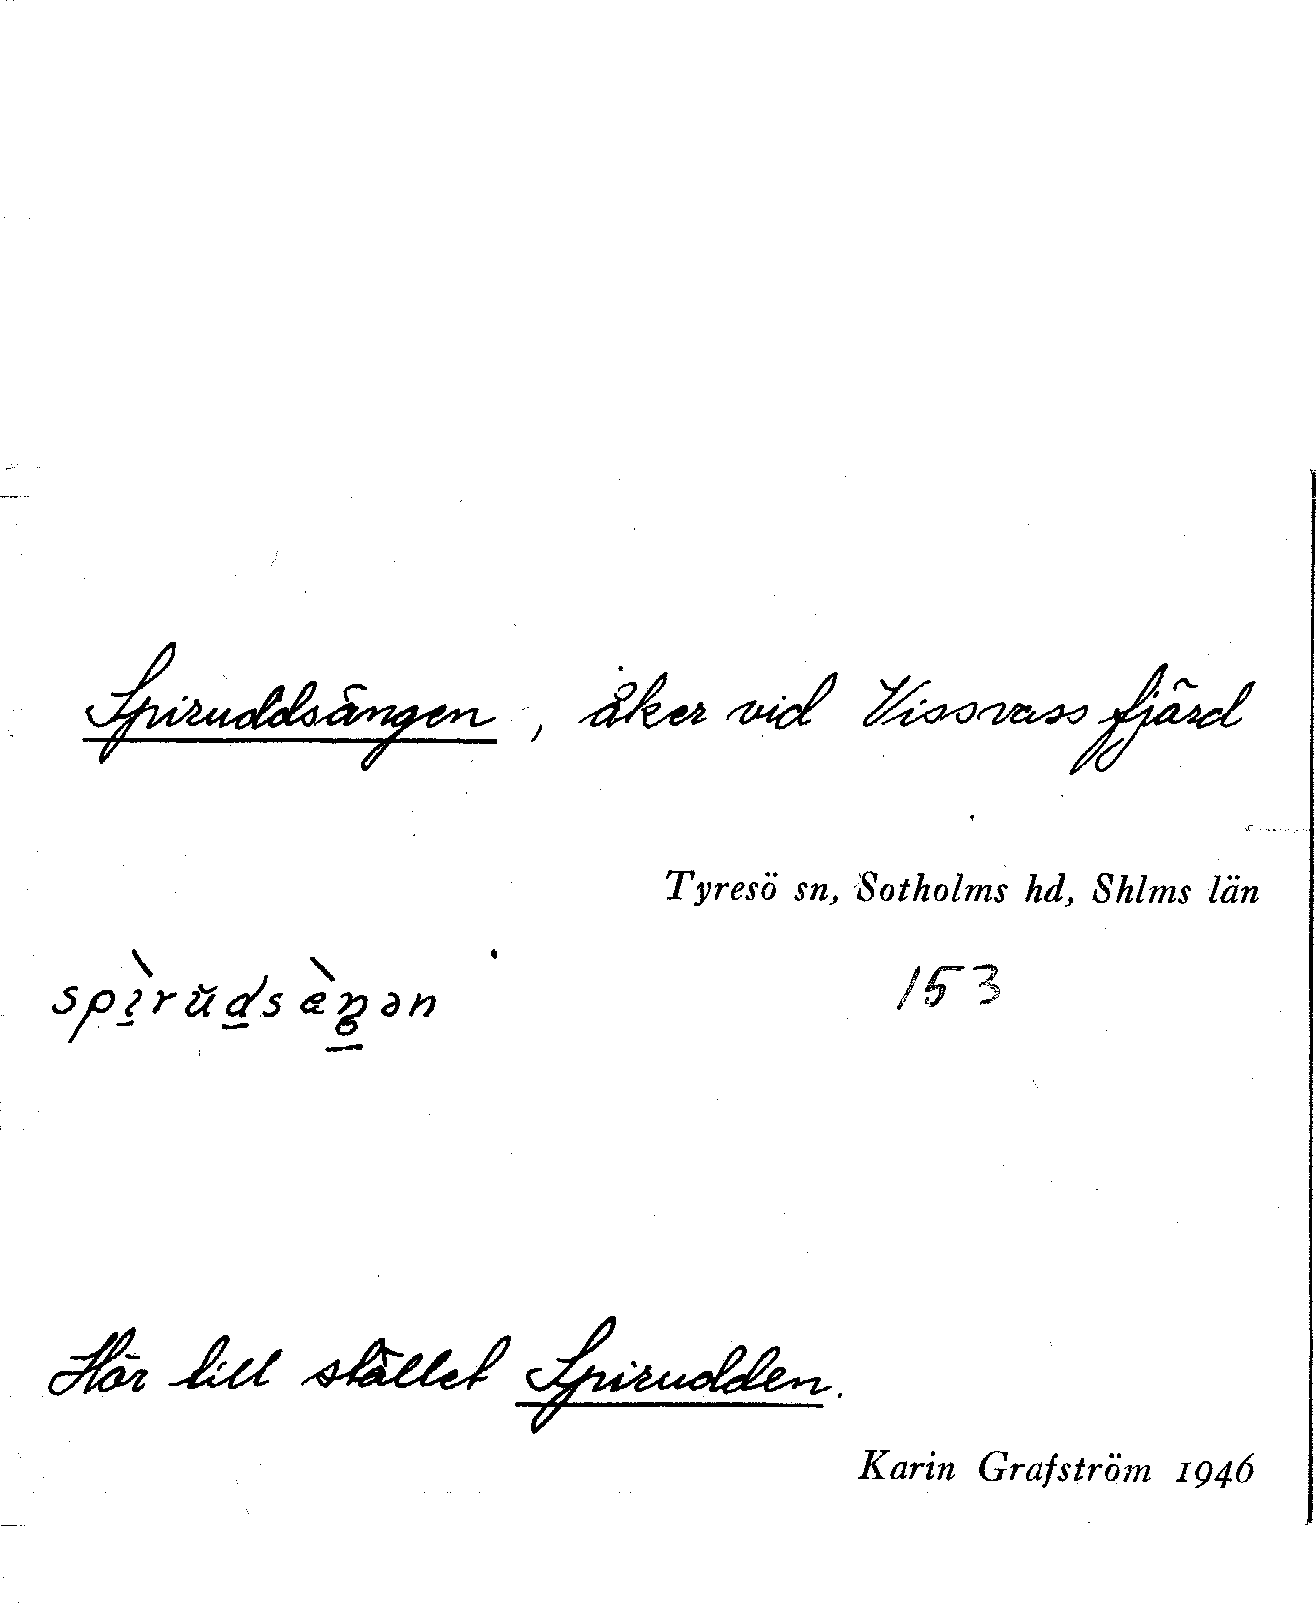 Spiruddsängen, åker vid Vissvass fjärd
Tyresö sn, Sotholms hd, Shlms län
spìrŭdsæ̀ŋən
153
Hör till stället Spirudden.
Karin Grafström 1946